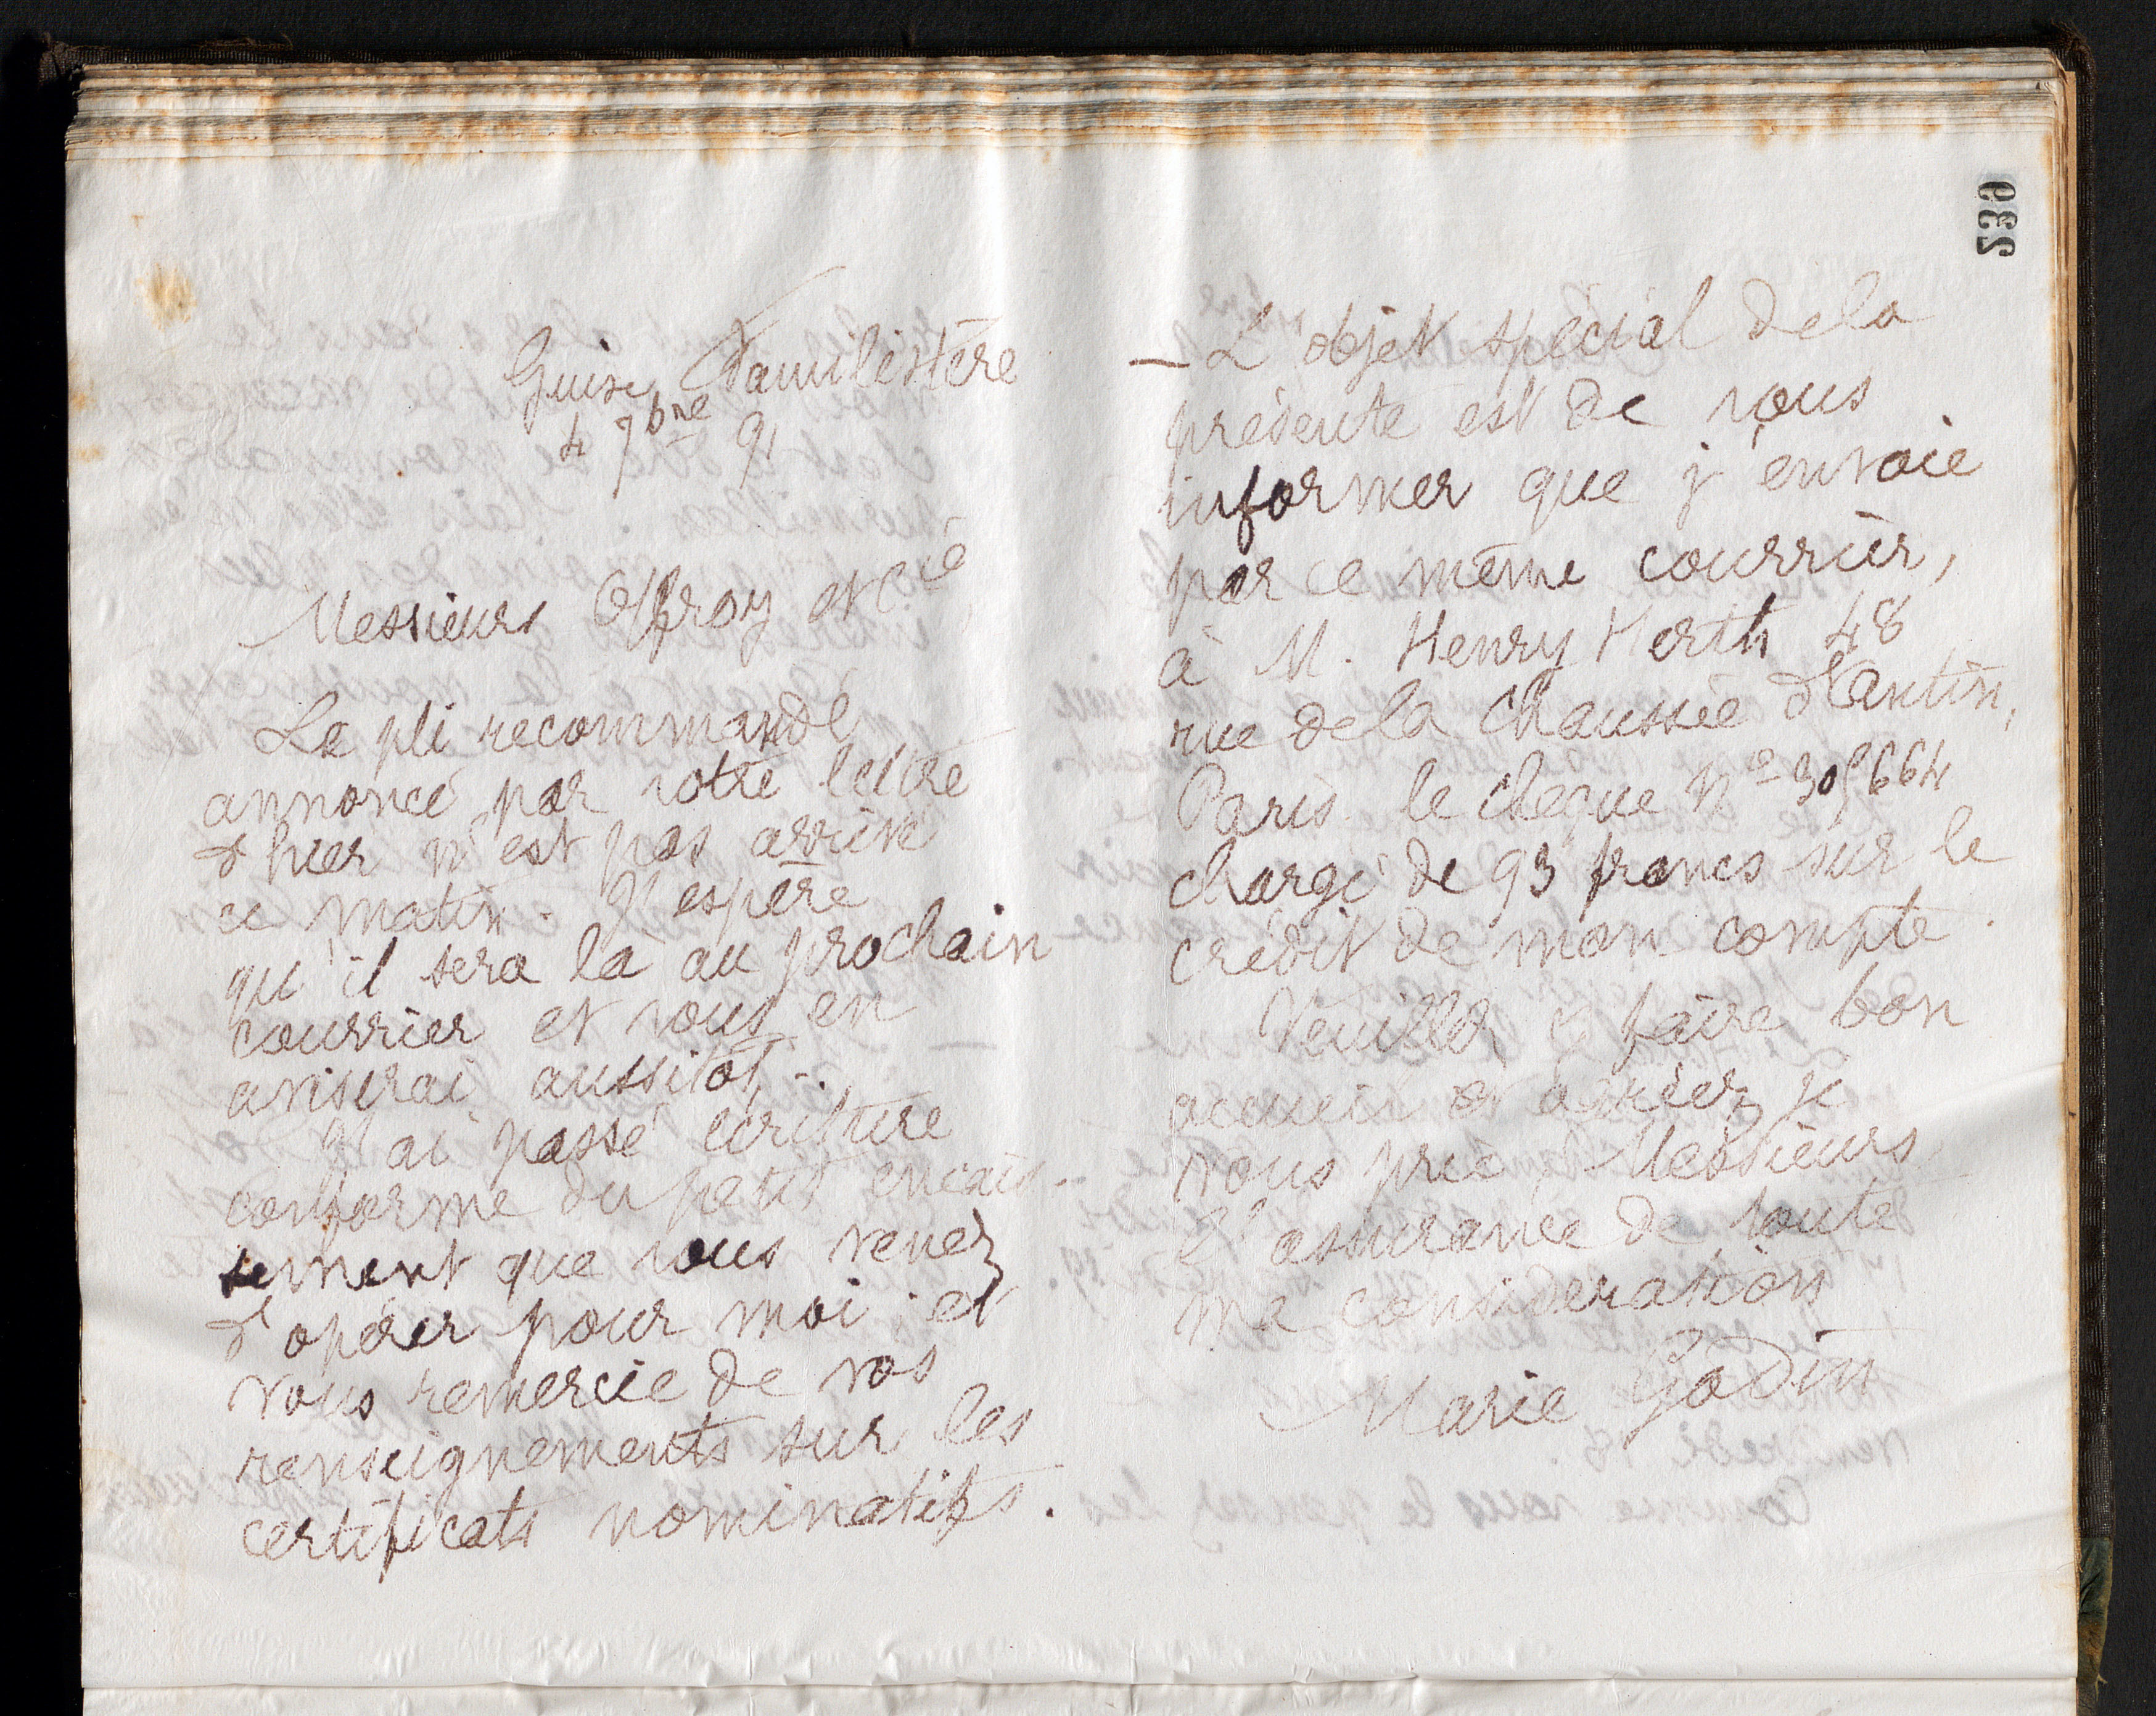 Guise Familistère
4 7bre 91
Messieurs Offroy et Cie
Le pli recommandé
annoncé par votre lettre
d'hier n'est pas arrivé
ce matin. J'espère
qu'il sera là au prochain
courrier et vous en
aviserai aussitôt.
J'ai passé écriture
conforme du petit encais-
sement que vous venez
d'opérer pour moi ; et
vous remercie de vos
renseignements sur les
certificats nominatifs.
530
— L'objet spécial de la
présente est de vous
informer que j'envoie
par ce même courrier,
à M. Henry Verth 48
rue de la Chaussée d'Antin,
Paris. le chèque No 305664
chargé de 93 francs sur le
crédit de mon compte.
Veuillez y faire bon
accueil et agréer, je
vous prie, Messieurs,
l'assurance de toute
ma considération
Marie Godin